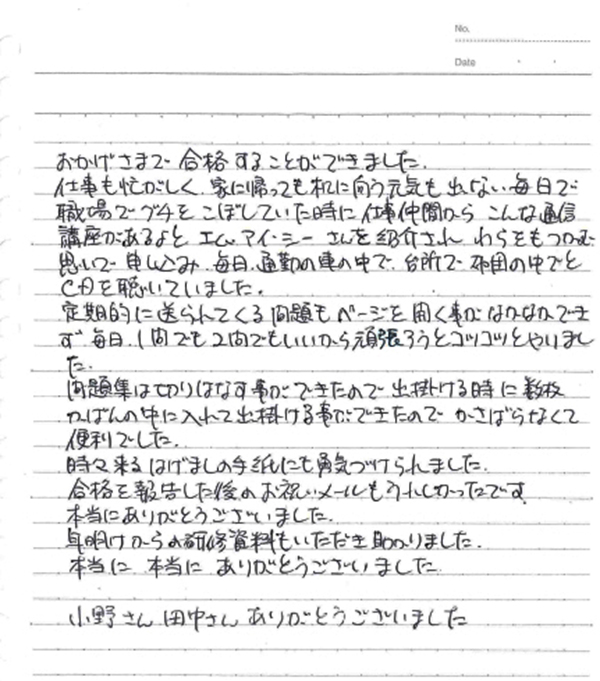 No.
Date
おかげさまで 合格することができました.
仕事も忙がしく 家に帰っても机に向う元気も出ない毎日で
職場でグチをこぼしていた時に 仕事仲間から こんな通信
講座があるよと エム.アイ.シー さんを紹介され わらをもつかむ
思いで 申し込み 毎日.通勤の車の中で. 台所で 布団の中でと
CDを聴いていました.
定期的に送られてくる問題も ページを開く事がなかなかでき
ず 毎日.1問でも2問でもいいから頑張ろうとコツコツとやりまし
た.
問題集は切りはなす事ができたので 出掛ける時に数枚
かばんの中に入れて出掛ける事ができたので かさばらなくて
便利でした.
時々来るはげましの手紙にも勇気づけられました.
合格を報告した後のお祝いメールもうれしかったです
本当にありがとうございました.
年明けからの研修資料もいただき助かりました.
本当に 本当に ありがとうございました
小野さん 田中さん ありがとうございました